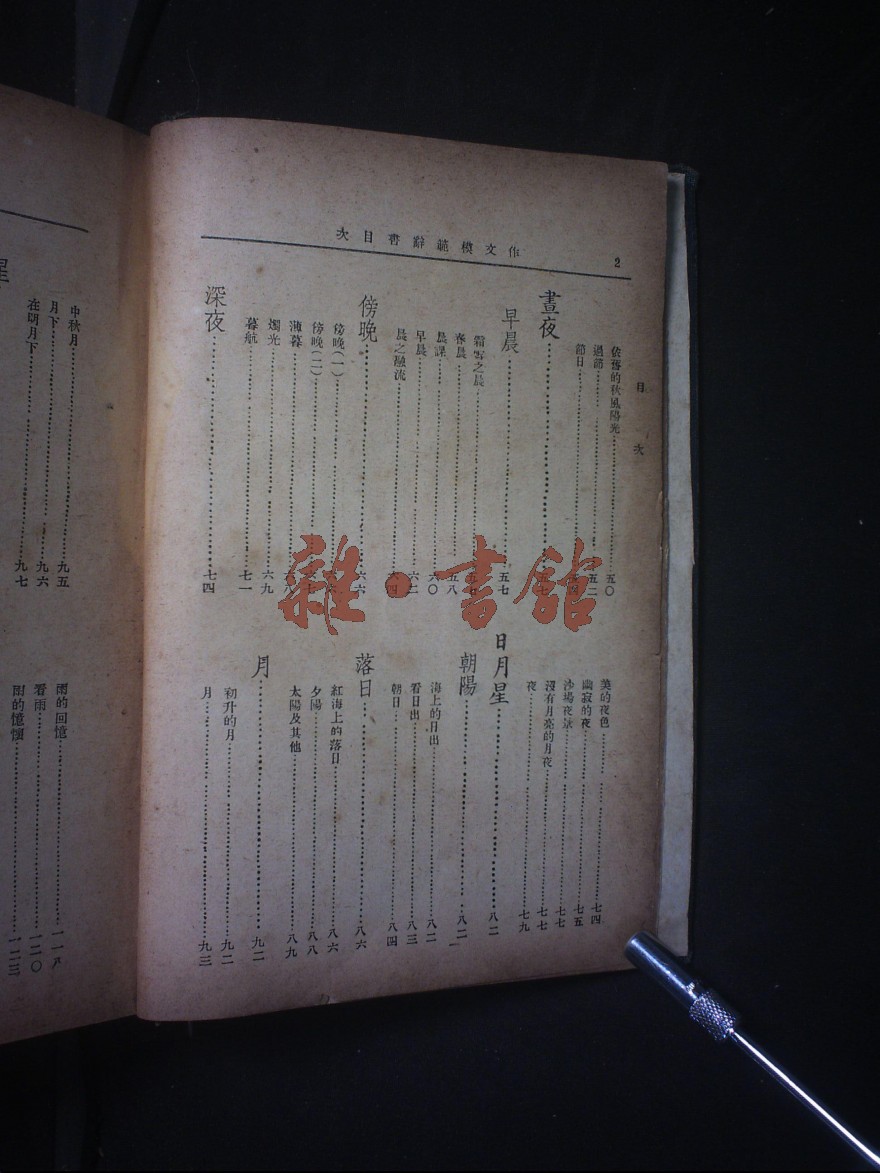 作文模範辭書目次
2
目次
依舊的秋風陽光 五〇
過節 五二
節日
晝夜 五七
早晨 五七
霜雪之晨
春晨 五八
晨課 六〇
早晨 六二
晨之融流 六四
傍晚 六六
傍晚(一)
傍晚(二)
薄暮 六八
燭光 六九
暮航 七一
深夜 七四
美的夜色 七四
幽寂的夜 七五
沙場夜景 七七
沒有月亮的月夜 七七
夜 七九
日月星 八二
朝陽 八二
海上的日出 八二
看日出 八三
朝日 八四
落日 八六
紅海上的落日 八六
夕陽 八八
太陽及其他 八九
月 九二
初升的月 九二
月 九三
中秋月 九五
月下 九六
在明月下 九七
星
雨的回憶
看雨 一二〇
雨的憶懷 一二三
雜·書館